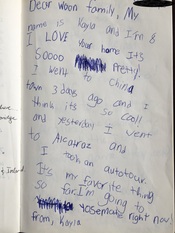 Dear Woon family, My
name is Kayla and I're 8
I LOVE your home It's
SOOOO pretty!
I went to China
town 3 days ago and I
think its so cool!
and yesterday I went
to Alcatraz and
I took an autotour.
It's my favorite thing
so far. I'm going to
Yosemate right now!
from, Kayla